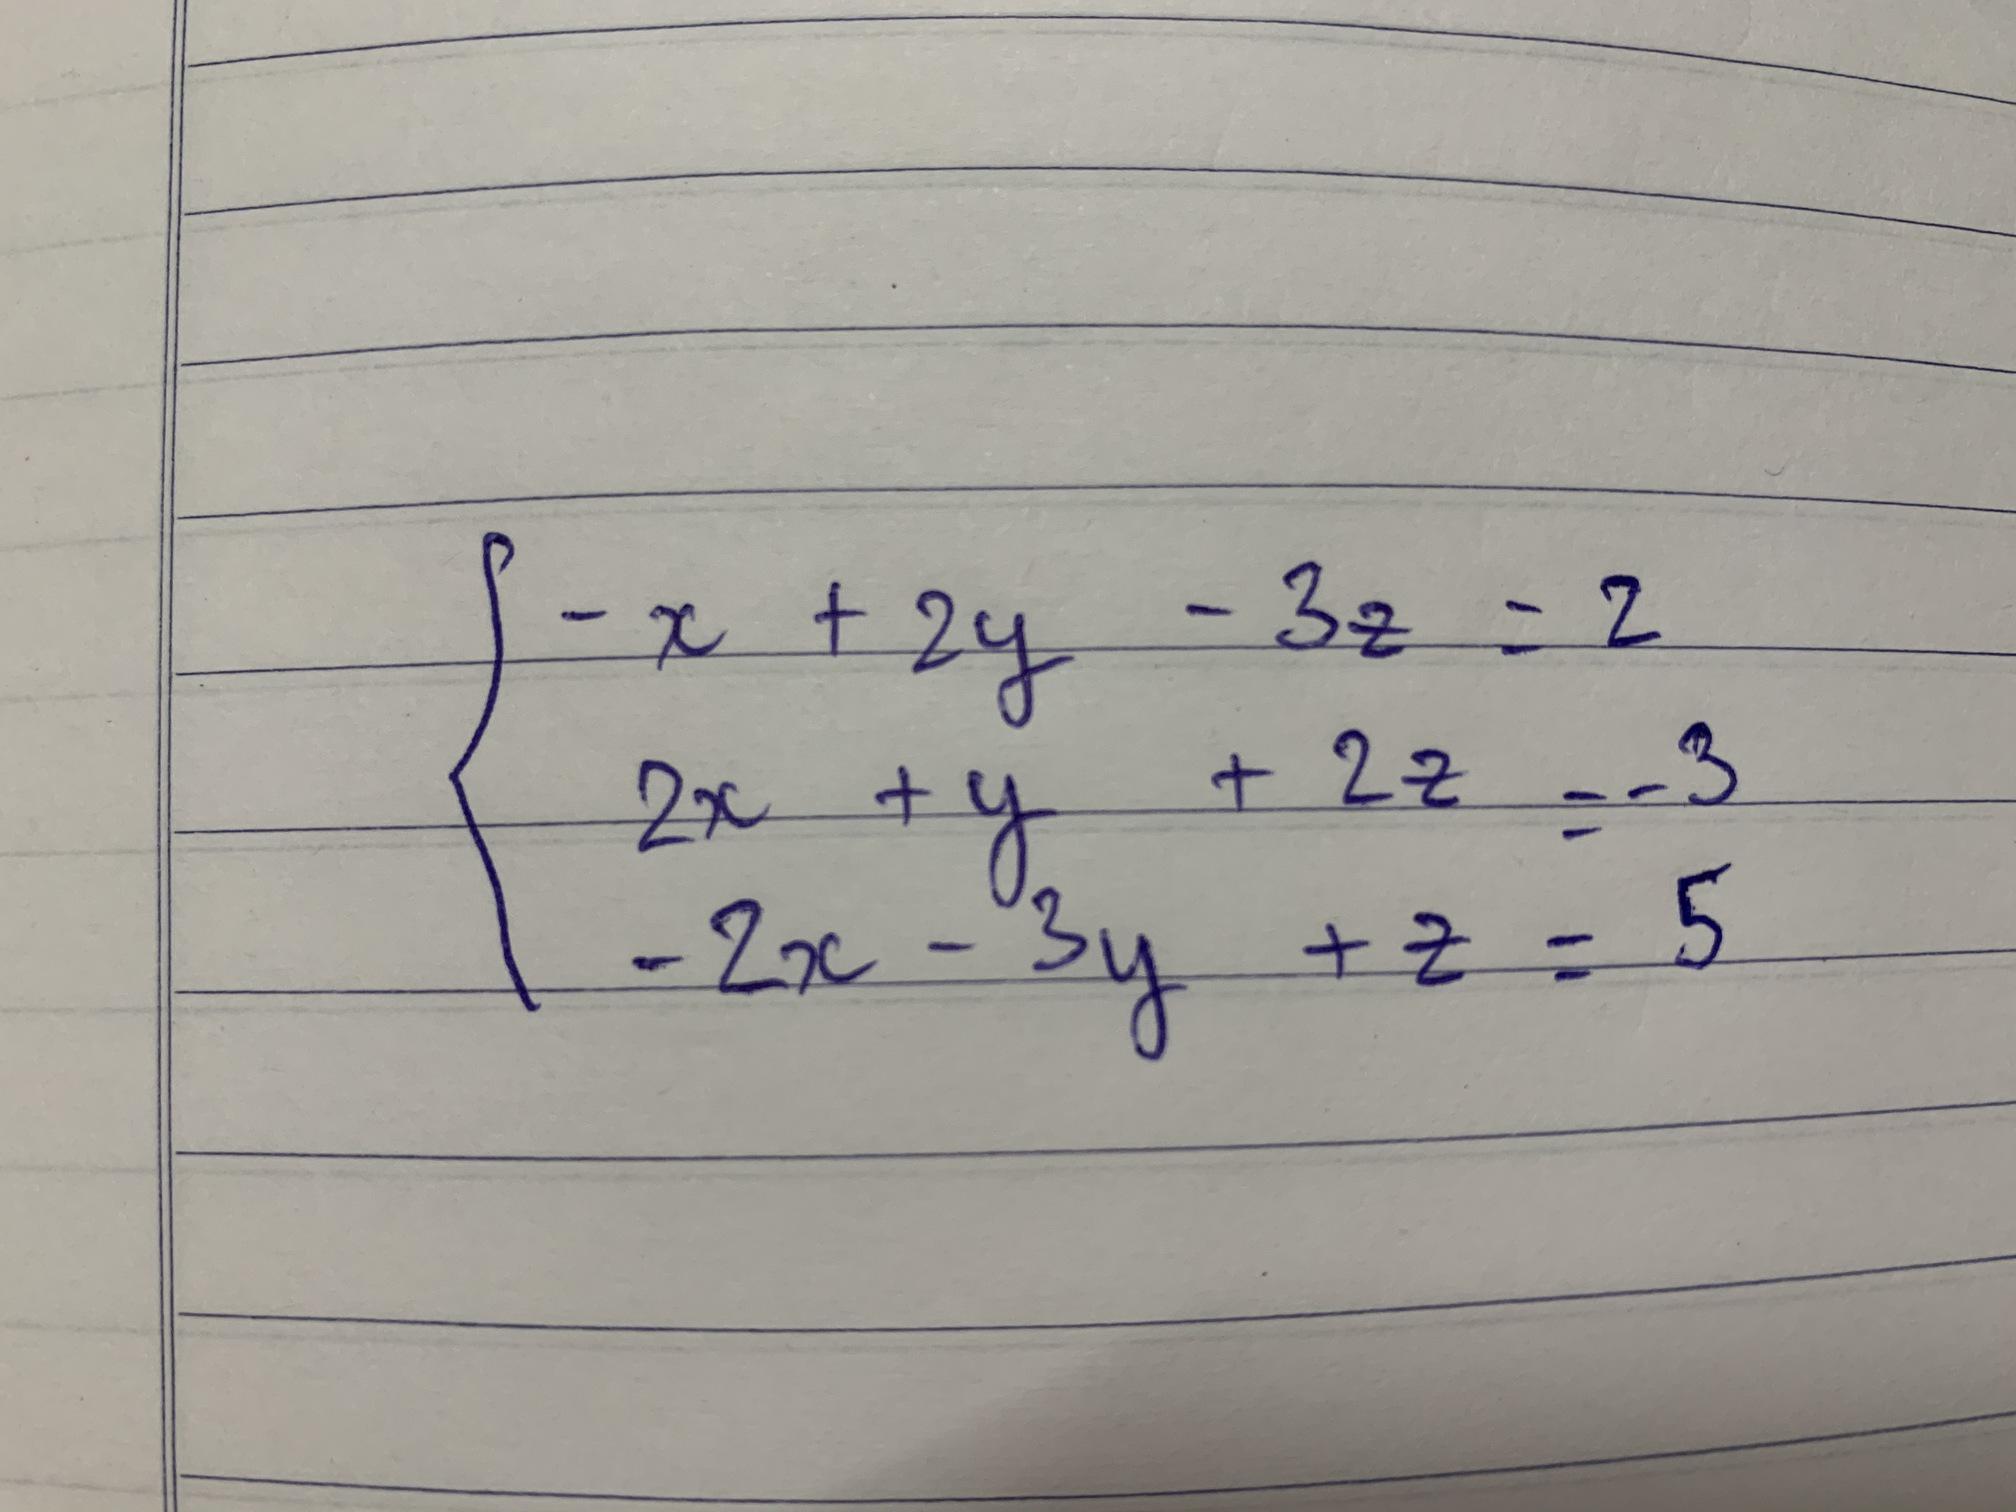 -x + 2y - 3z = 2
2x + y + 2z = -3
-2x - 3y + z = 5